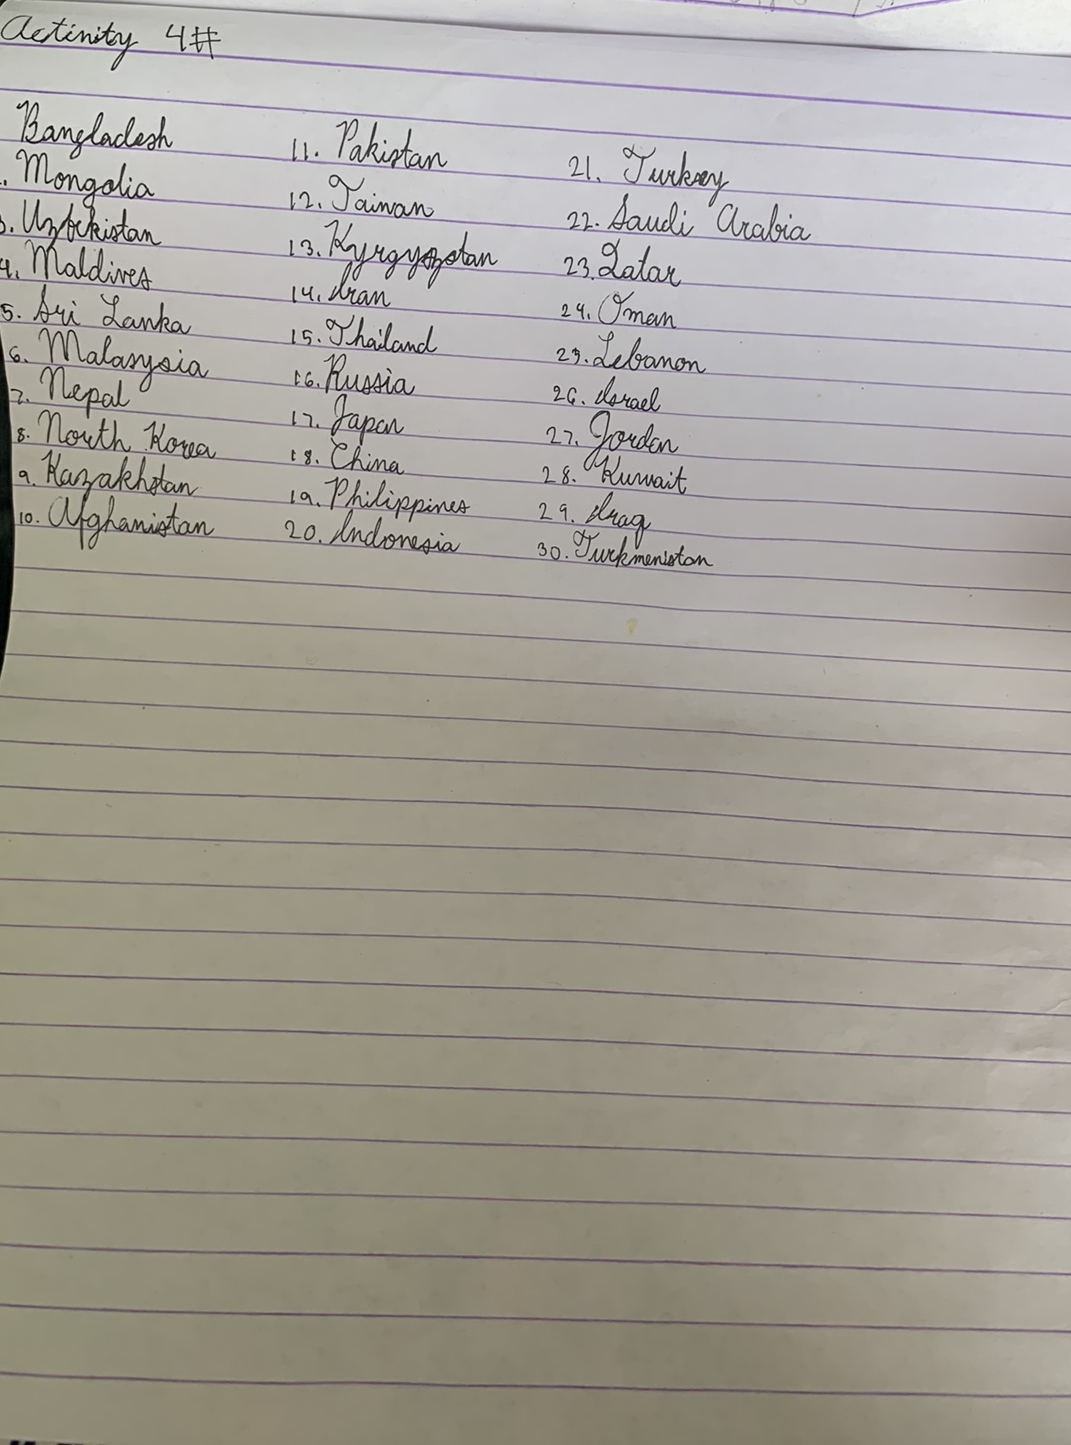 Activity 4#
Bangladesh
. Mongolia
3. Uzbekistan
4. Maldives
5. Sri Lanka
6. Malaysia
7. Nepal
8. North Korea
9. Kazakhstan
10. Afghanistan
11. Pakistan
12. Taiwan
13. Kyrgyzstan
14. Iran
15. Thailand
16. Russia
17. Japan
18. China
19. Philippines
20. Indonesia
21. Turkey
22. Saudi Arabia
23. Qatar
24. Oman
25. Lebanon
26. Israel
27. Jordan
28. Kuwait
29. Iraq
30. Turkmenistan